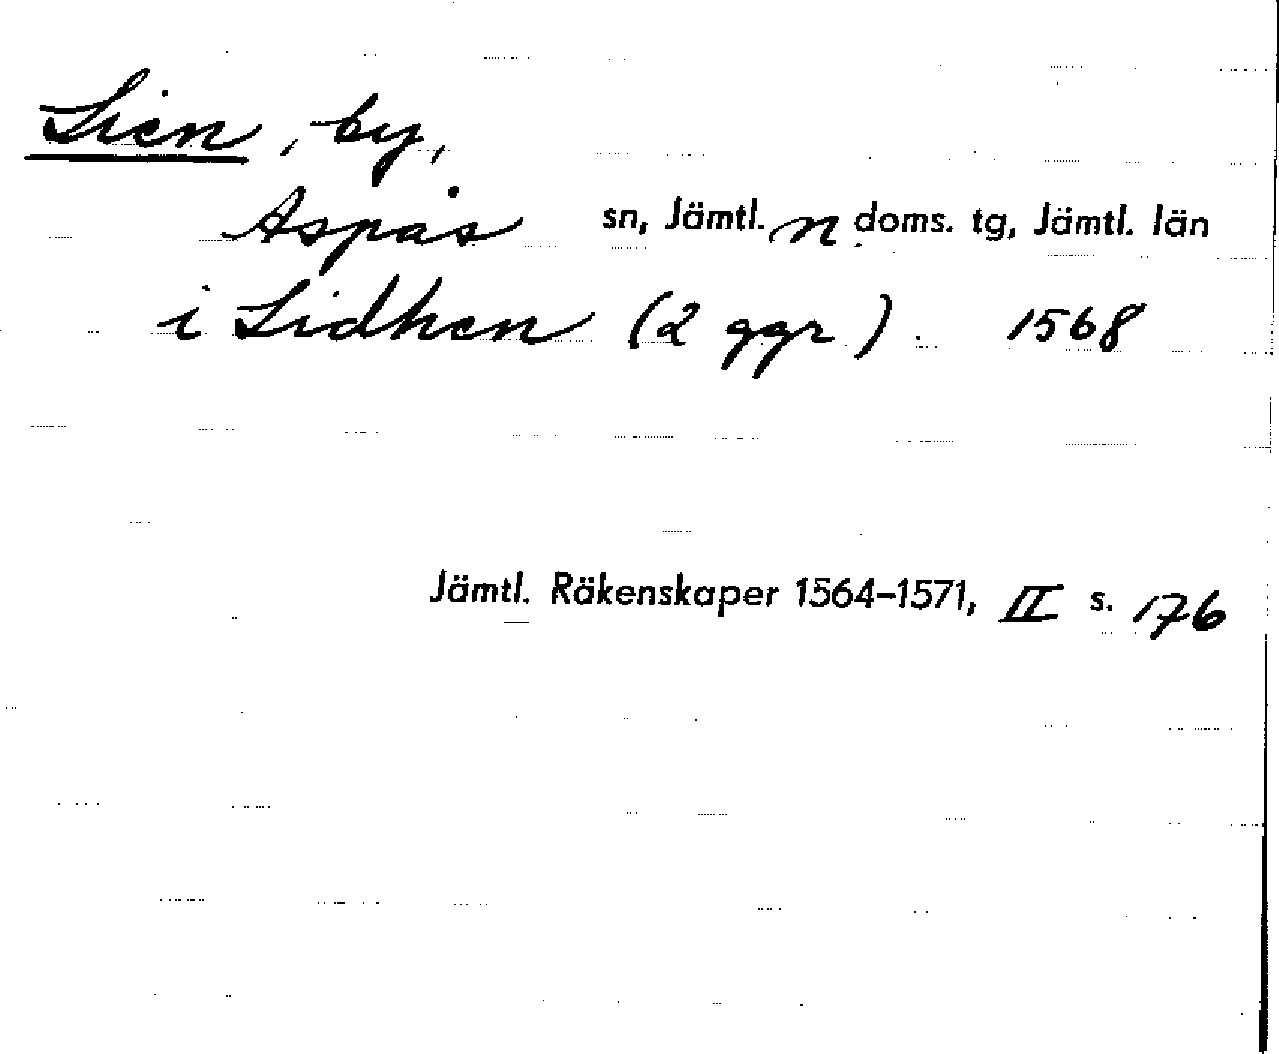 Lien, by,
Aspås sn, Jämtl. n doms. tg, Jämtl. län
i Lidhen (2 ggr). 1568
Jämtl. Räkenskaper 1564–1571, II s. 176